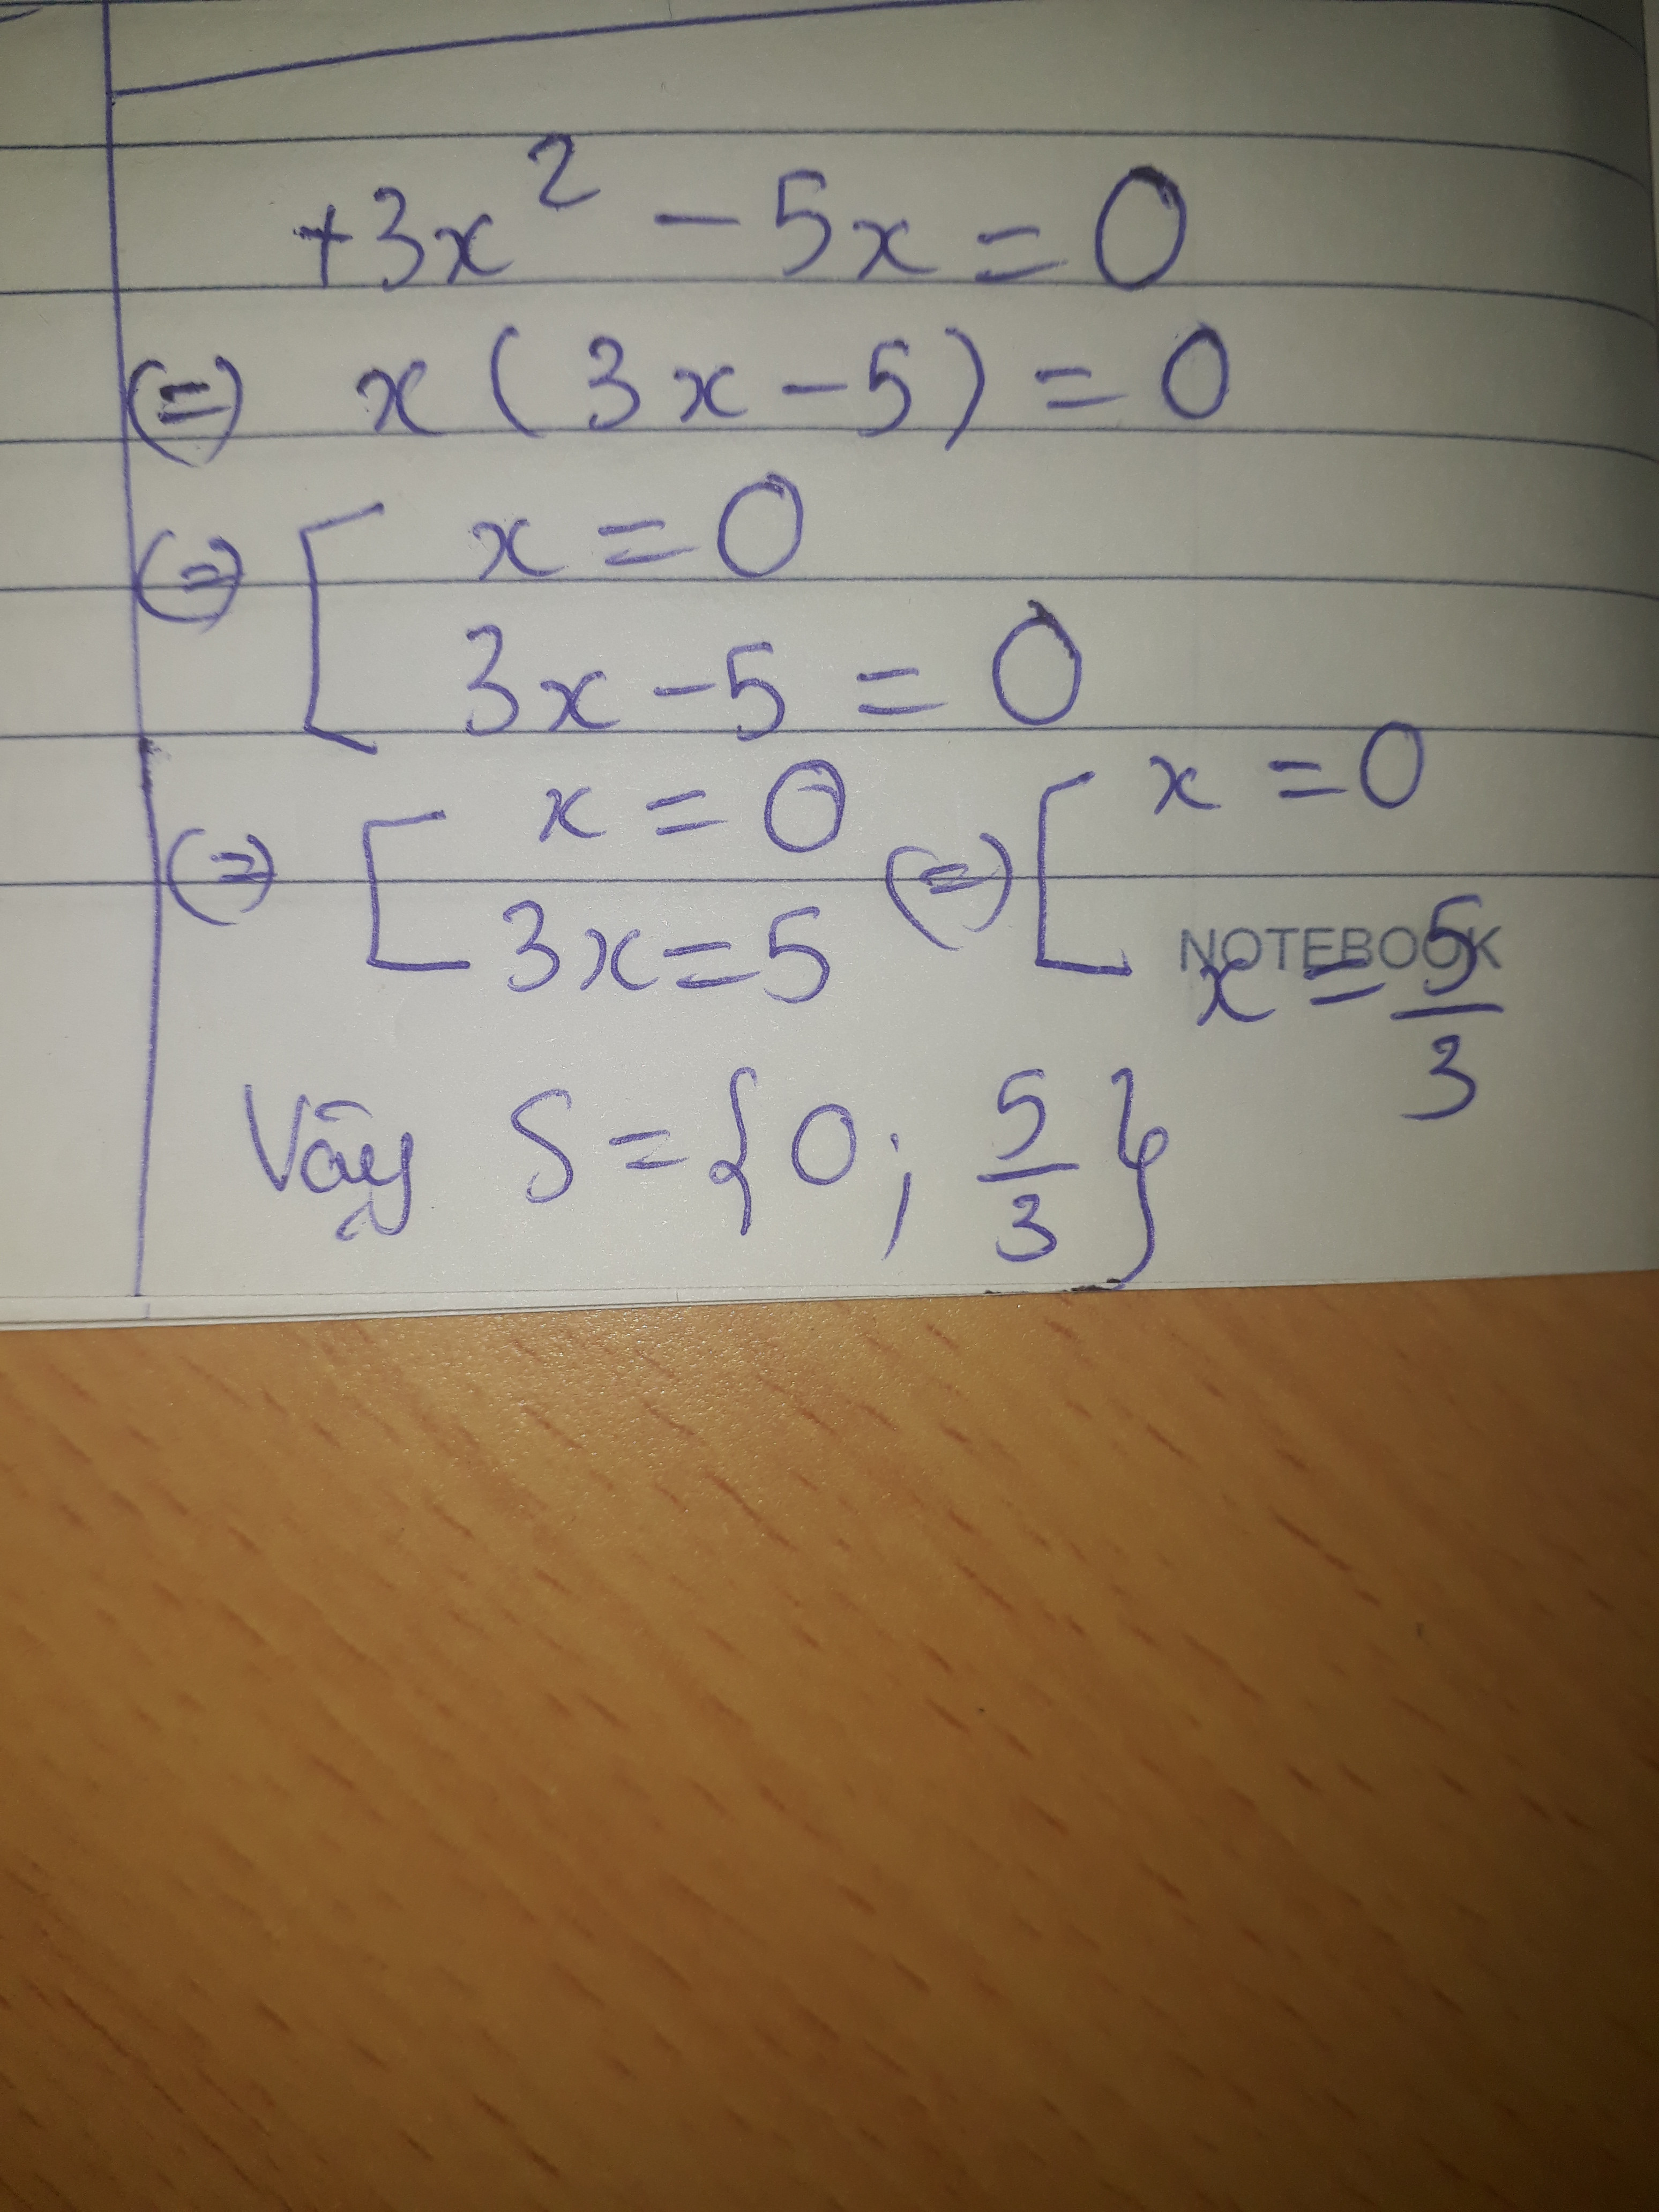 +3x² - 5x = 0
(=) x ( 3x - 5 ) = 0
(=) [ x = 0
3x - 5 = 0
(=) [ x = 0 (=) [ x = 0
3x = 5 x = 5/3
NOTEBOOK
Vậy S = { 0 ; 5/3 }